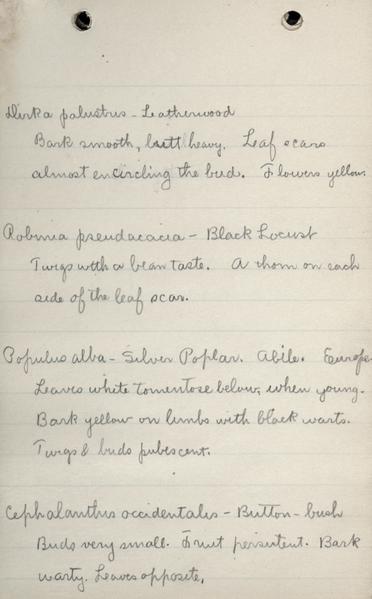 Dirka palustris - Leatherwood
Bark smooth, butt heavy. Leaf scars
almost encircling the bud. Flowers yellow.
Robinia pseudacacia - Black Locust
Twigs with a bean taste. A thorn on each
side of the leaf scar.
Populus alba - Silver Poplar. Abile. Europe
Leaves white tomentose below, when young.
Bark yellow on limbs with black warts.
Twigs & buds pubescent.
Cephalanthus occidentalis - Button-bush
Buds very small. Fruit persistent. Bark
warty. Leaves opposite.